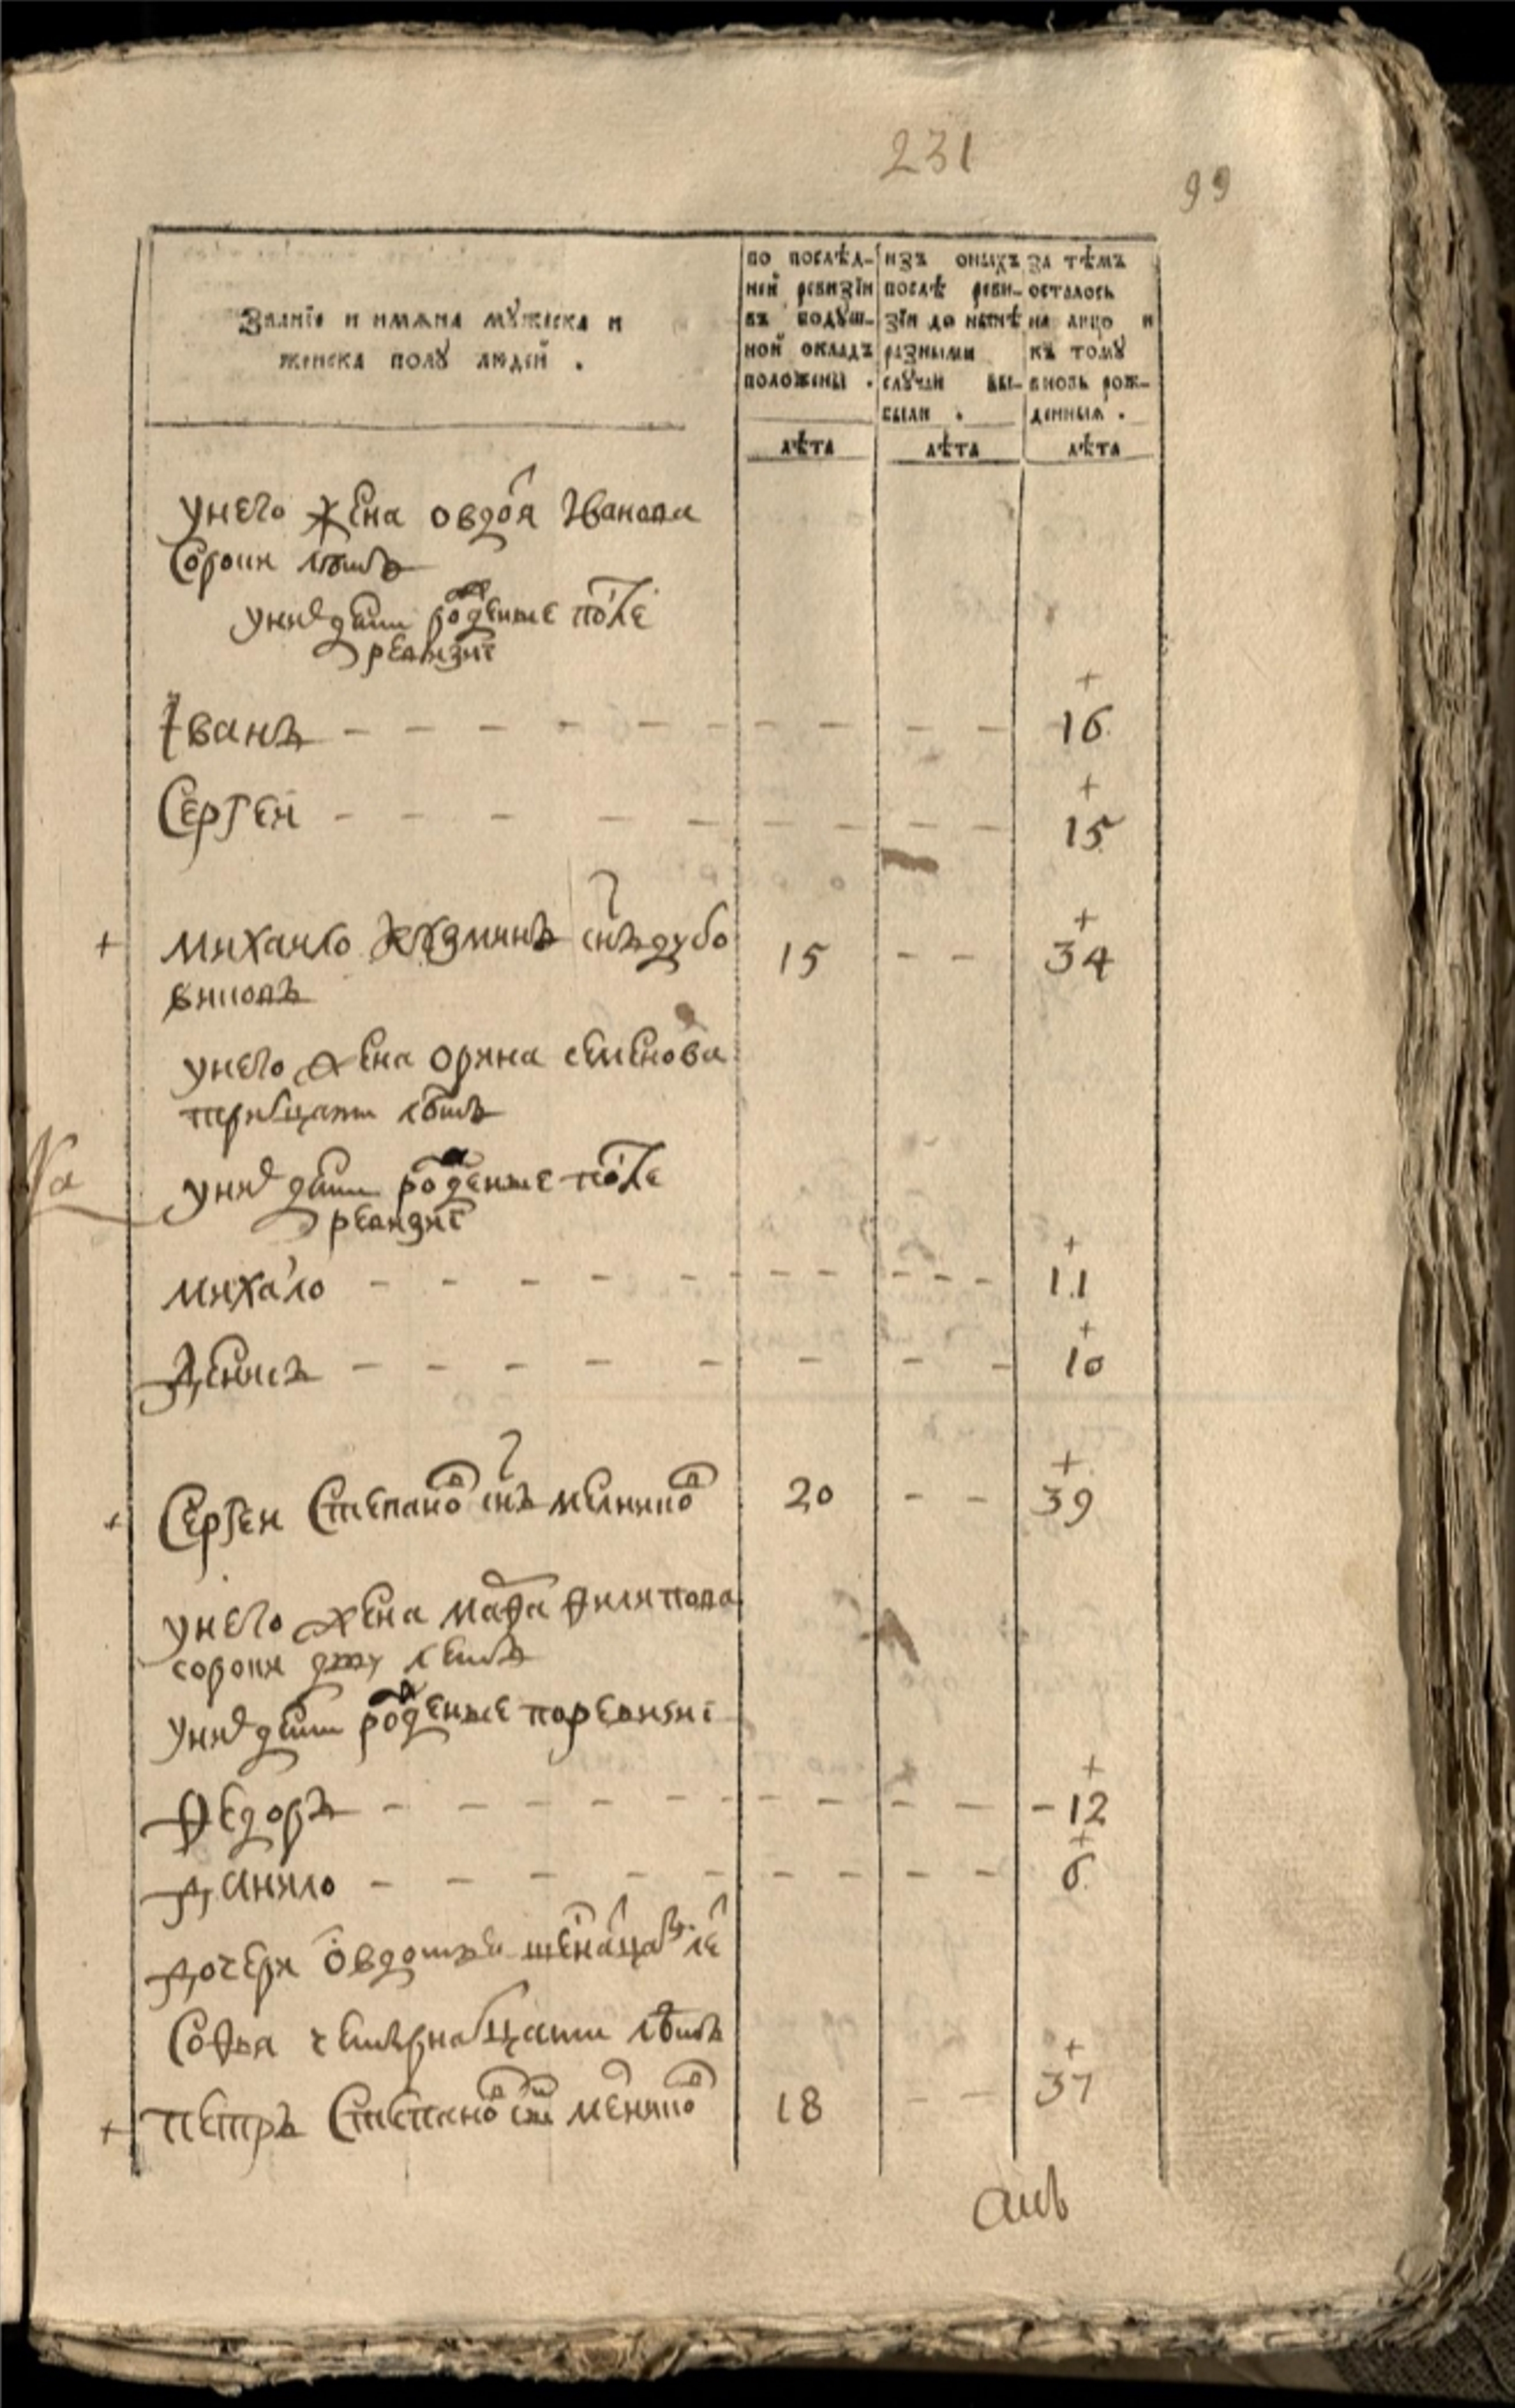 231
99
Званїе и имѧна мꙋжеска и
женска полꙋ людей .
по послѣд-
ней ревизїи
въ подꙋш-
ной окладъ
положены .
изъ оныхъ
послѣ реви-
зїи до нынѣ
разными
слꙋчаи вы-
были .
за тѣмъ
осталось
на лицо и
къ томꙋ
вновь рож-
денныя .
лѣта лѣта лѣта
у него жена овдоя Иванова
Сорони лѣтъ
у нид дѣти роденые после
ревизиї
Iванъ - - - - - - - - - + 16
Сергеи - - - - - - - - - + 15
+ михаило кузминъ снъ дубо 15 - - + 34
виковъ
у него жена орина семенова
тритцати лѣтъ
у нид дѣти роденые после
ревизиї
михало - - - - - - - - - + 11
Денисъ - - - - - - - - + 10
+ Сергеи Степанов снъ мелников 20 - - + 39
у него жена марфа филипова
сороки дву летъ
у нид дети роденые по ревизиї
Федоръ - - - - - - - - - + 12
Данило - - - - - - - - - + 6
дочери овдотья
Софья четырнатцати лѣтъ
+ петръ Степанов сн мелников 18 - - + 37